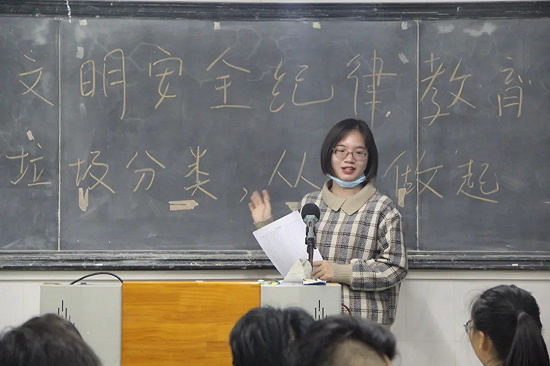 文明安全纪律教育
垃圾分类,从做起